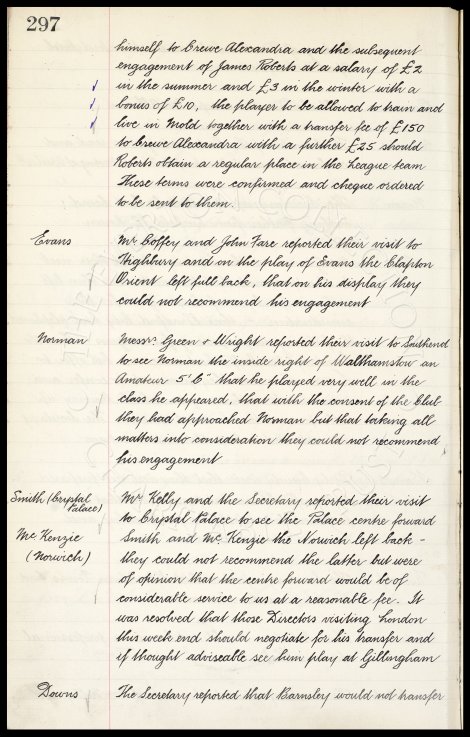 297
himself to Crewe Alexandra and the subsequent
engagement of James Roberts at a salary of £2
in the summer and £3 in the winter with a
bonus of £10, the player to be allowed to train and
live in Mold together with a transfer fee of £150
to Crewe Alexandra with a further £25 should
Roberts obtain a regular place in the League team
These terms were confirmed and cheque ordered
to be sent to them.
Evans
Mr Coffey and John Fare reported their visit to
Highbury and on the play of Evans the Clapton
Orient left full back, that on his display they
could not recommend his engagement
Norman
Messrs Green & Wright reported their visit to Southend
to see Norman the inside right of Walthamstow an
Amateur 5'6" that he played very well in the
class he appeared, that with the consent of the Club
they had approached Norman but that taking all
matters into consideration they could not recommend
his engagement
Smith (Crystal
Palace)
Mc Kenzie
(Norwich)
Mr Kelly and the Secretary reported their visit
to Crystal Palace to see the Palace centre forward
Smith and Mc Kenzie the Norwich left back -
they could not recommend the latter but were
of opinion that the centre forward would be of
considerable service to us at a reasonable fee. It
was resolved that those Directors visiting London
this week end should negotiate for his transfer and
if thought adviseable see him play at Gillingham
Downs
The Secretary reported that Barnsley would not transfer